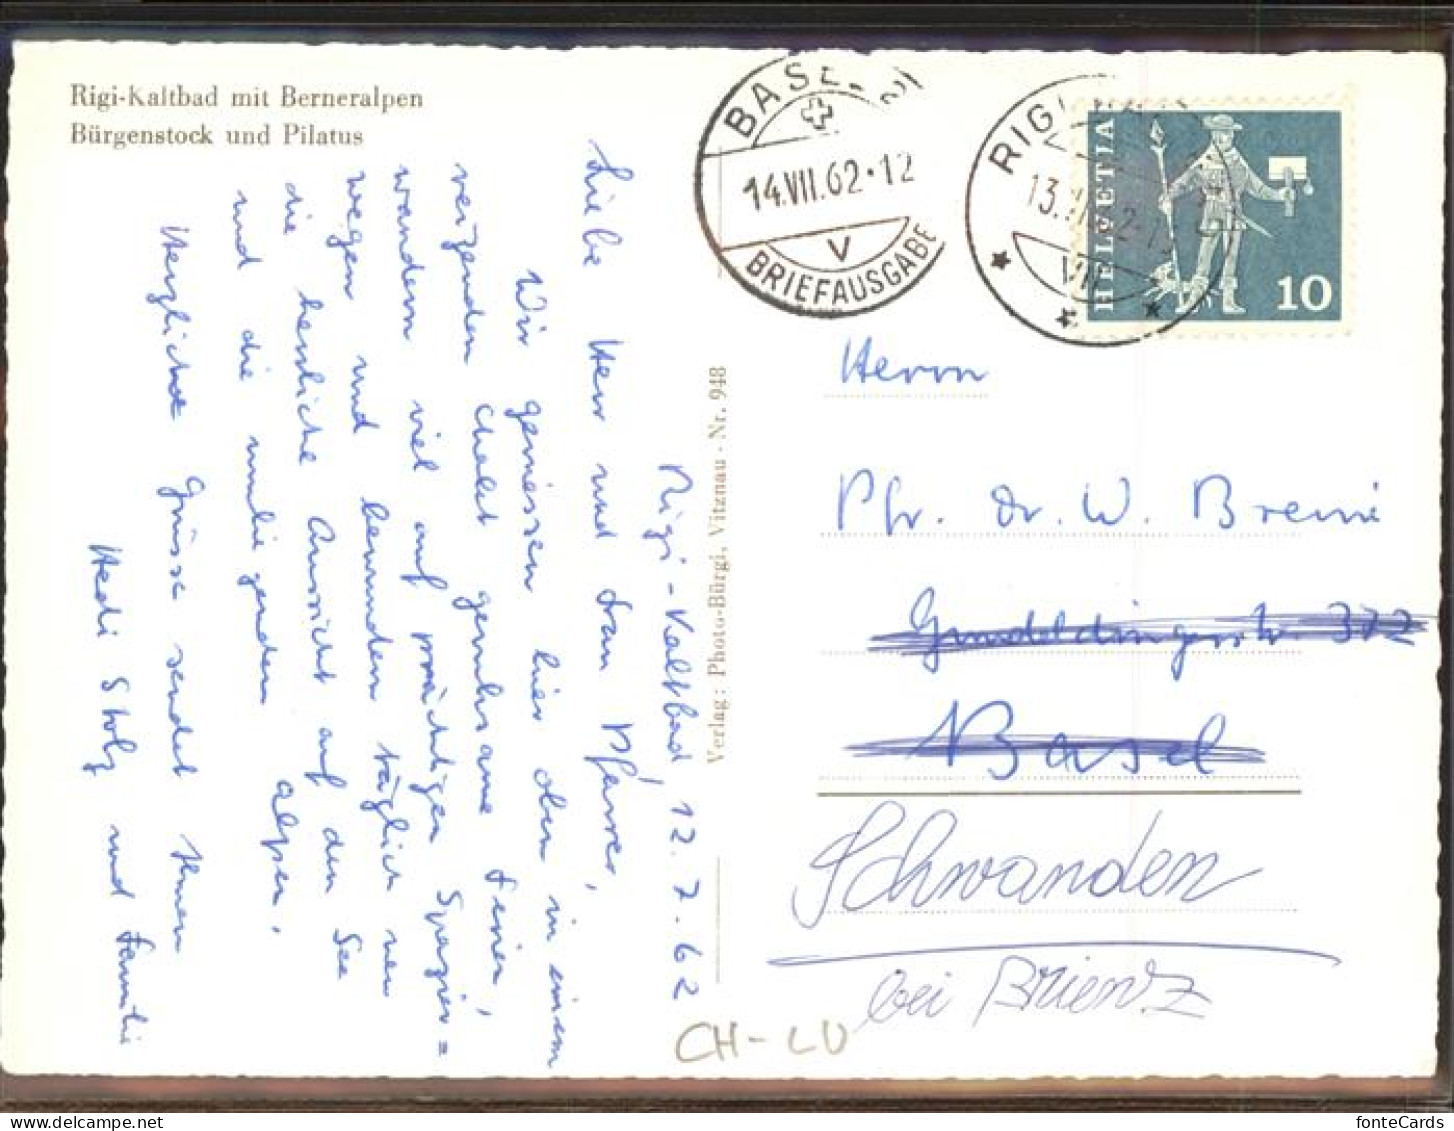 Rigi-Kaltbad mit Berneralpen
Bürgenstock und Pilatus
Rigi-Kaltbad, 12. 7. 62
Liebe Herr und Frau Pfarrer,
Wir geniessen hier oben in einem
reizenden Chalet geruhsame Ferien,
wandern viel auf prächtigen Spazier=
wegen und bewundern täglich neu
die herrliche Aussicht auf den See
und die umliegenden Alpen.
Herzliche Grüsse sendet Ihnen
Hedi Stolz und Familie
Verlag: Photo-Bürgi, Vitznau - Nr. 948
BASEL 2
14.VII.62-12
V
BRIEFAUSGABE
RIGI
13.
VII
HELVETIA
10
Herrn
Pfr. Dr. W. Breni
Gundeldingerstr. 372
Basel
Schwanden
bei Brienz
CH-LU
fonteCards